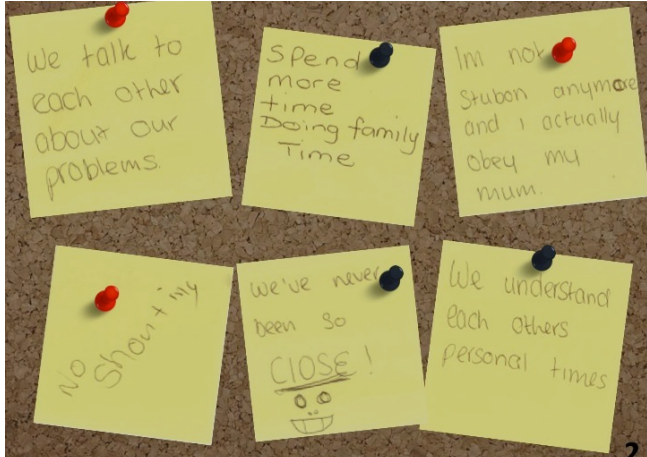 We talk to
each other
about our
problems.
Spend
more
time
Doing family
Time
Im not
Stubon anymore
and i actually
obey my
mum.
No
Shouting
We've never
been so
CLOSE!
We understand
each others
personal times
2